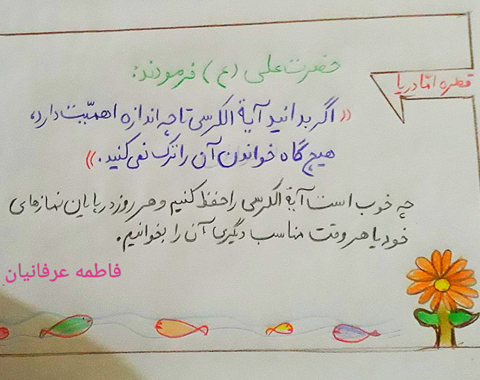 قطره امّا دریا
حضرت علی (ع) فرمودند:
«اگر بدانید آیة الکرسی تا چه اندازه اهمیّت دارد،
هیچ گاه خواندن آن را ترک نمی کنید.»
چه خوب است آیة الکرسی را حفظ کنیم و هر روز در پایان نمازهای
خود یا هر وقت مناسب دیگری آن را بخوانیم.
فاطمه عرفانیان